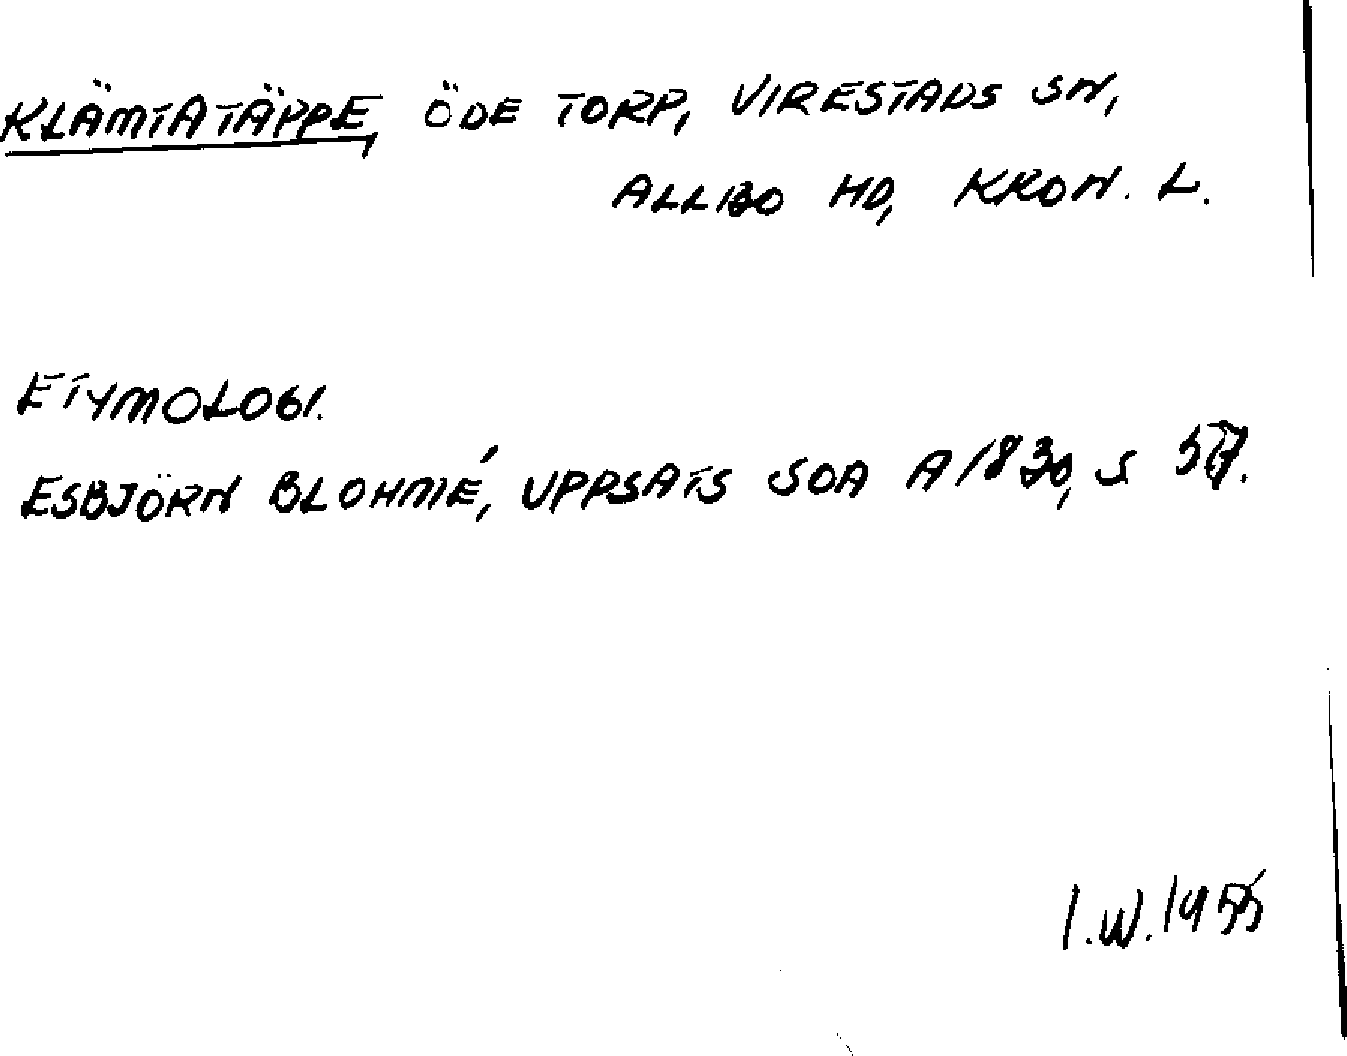 KLÄMTATÄPPE, ÖDE TORP, VIRESTADS SN,
ALLBO HD, KRON. L.
ETYMOLOGI.
ESBJÖRN BLOHMÉ, UPPSATS SOA A 1830, S 57.
I.W. 1955